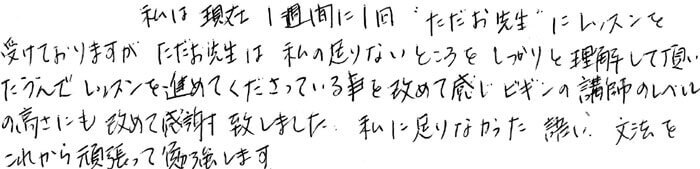 私は 現在 1週間に1回 "ただお先生" にレッスンを
受けておりますが ただお先生は 私の足りないところを しっかりと理解して頂い
たうえで レッスンを進めてくださっている事を改めて感じ ビギンの講師のレベル
の高さにも 改めて感謝 致しました. 私に足りなかった 語い. 文法を
これから頑張って勉強します